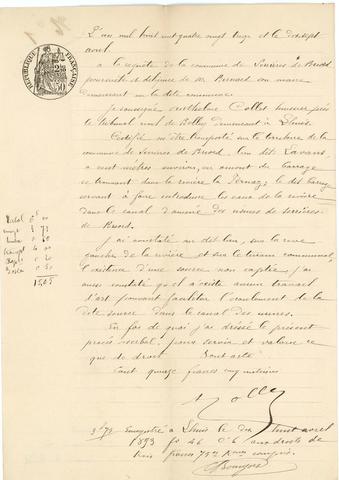 L'an mil huit cent quatre vingt treize et le dix sept
avril.
RÉPUBLIQUE FRANÇAISE
à la requête de la commune de Serrières de Briord
poursuite et diligence de Mr Bernard son maire
demeurant en la dite commune
Je soussigné Anthelme Collet huissier près
le tribunal civil de Belley demeurant à Lhuis
Certifie m'être transporté sur le territoire de la
commune de Serrières de Briord, lieu dit Lavans,
à cent mètres environ, en amont du barrage
se trouvant dans la rivière la Pernaz, le dit barrage
servant à faire introduire les eaux de la rivière
dans le canal d'amenée des usines de Serrières
de Briord.
J'ai constaté au dit lieu, sur la rive
gauche de la rivière et sur le terrain communal,
l'existence d'une source non captée, j'ai
aussi constaté qu'il n'existe aucun travail
d'art pouvant faciliter l'écoulement de la
dite source dans le canal des usines.
En foi de quoi j'ai dressé le présent
procès verbal, pour servir et valoir ce
que de droit. Dont acte
Coût quinze francs cinq centimes
Enregistré à Lhuis le dix huit avril
1893 fo 46 Ce 6 aux droits de
trois francs 75c Xmes compris.
15,05